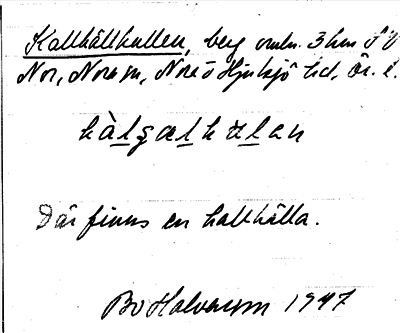 Kallhällkullen, berg omkr. 3 km SV
Nor, Nora sn, Nora o Hjulsjö bd, Ör. l.
kàlʒælkulan
Där finns en kallhälla.
Bo Halvarson 1947